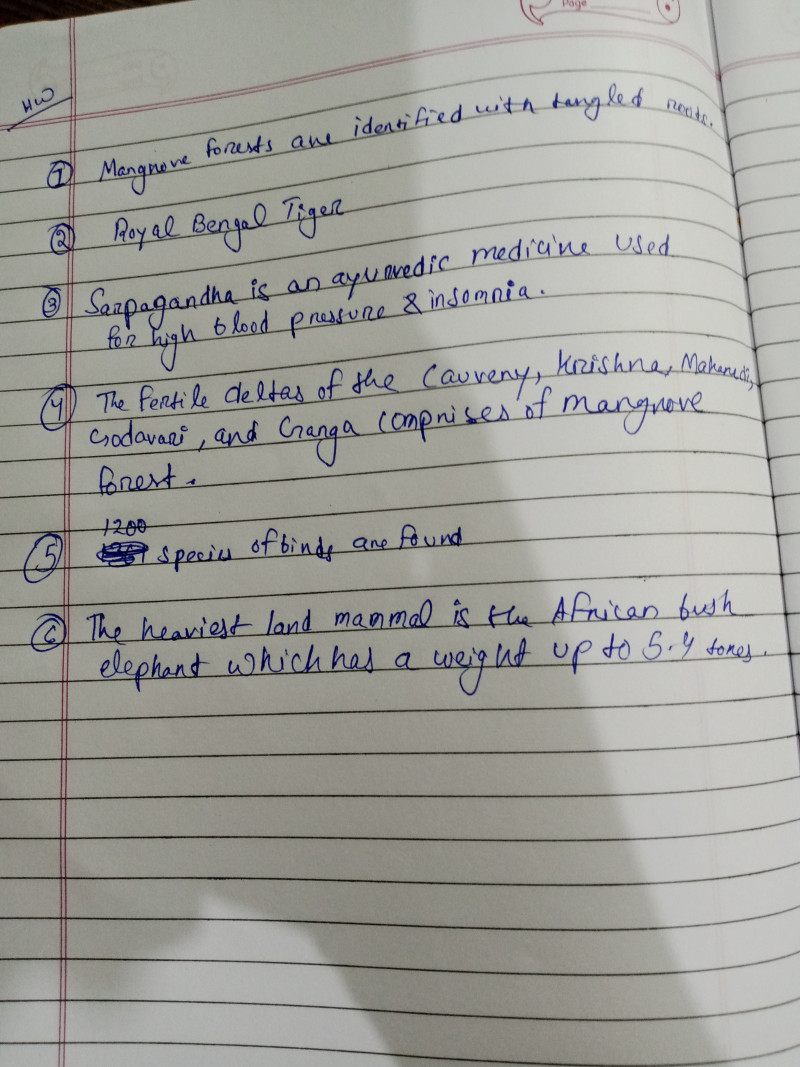 Page
HW
① Mangrove forests are identified with tangled roots.
② Royal Bengal Tiger
③ Sarpagandha is an ayurvedic medicine used
for high blood pressure & insomnia.
④ The fertile deltas of the Cauvery, Krishna, Mahanadi,
Godavari, and Ganga comprises of mangrove
forest.
1200
⑤ species of birds are found
⑥ The heaviest land mammal is the African bush
elephant which has a weight up to 5.4 tones.